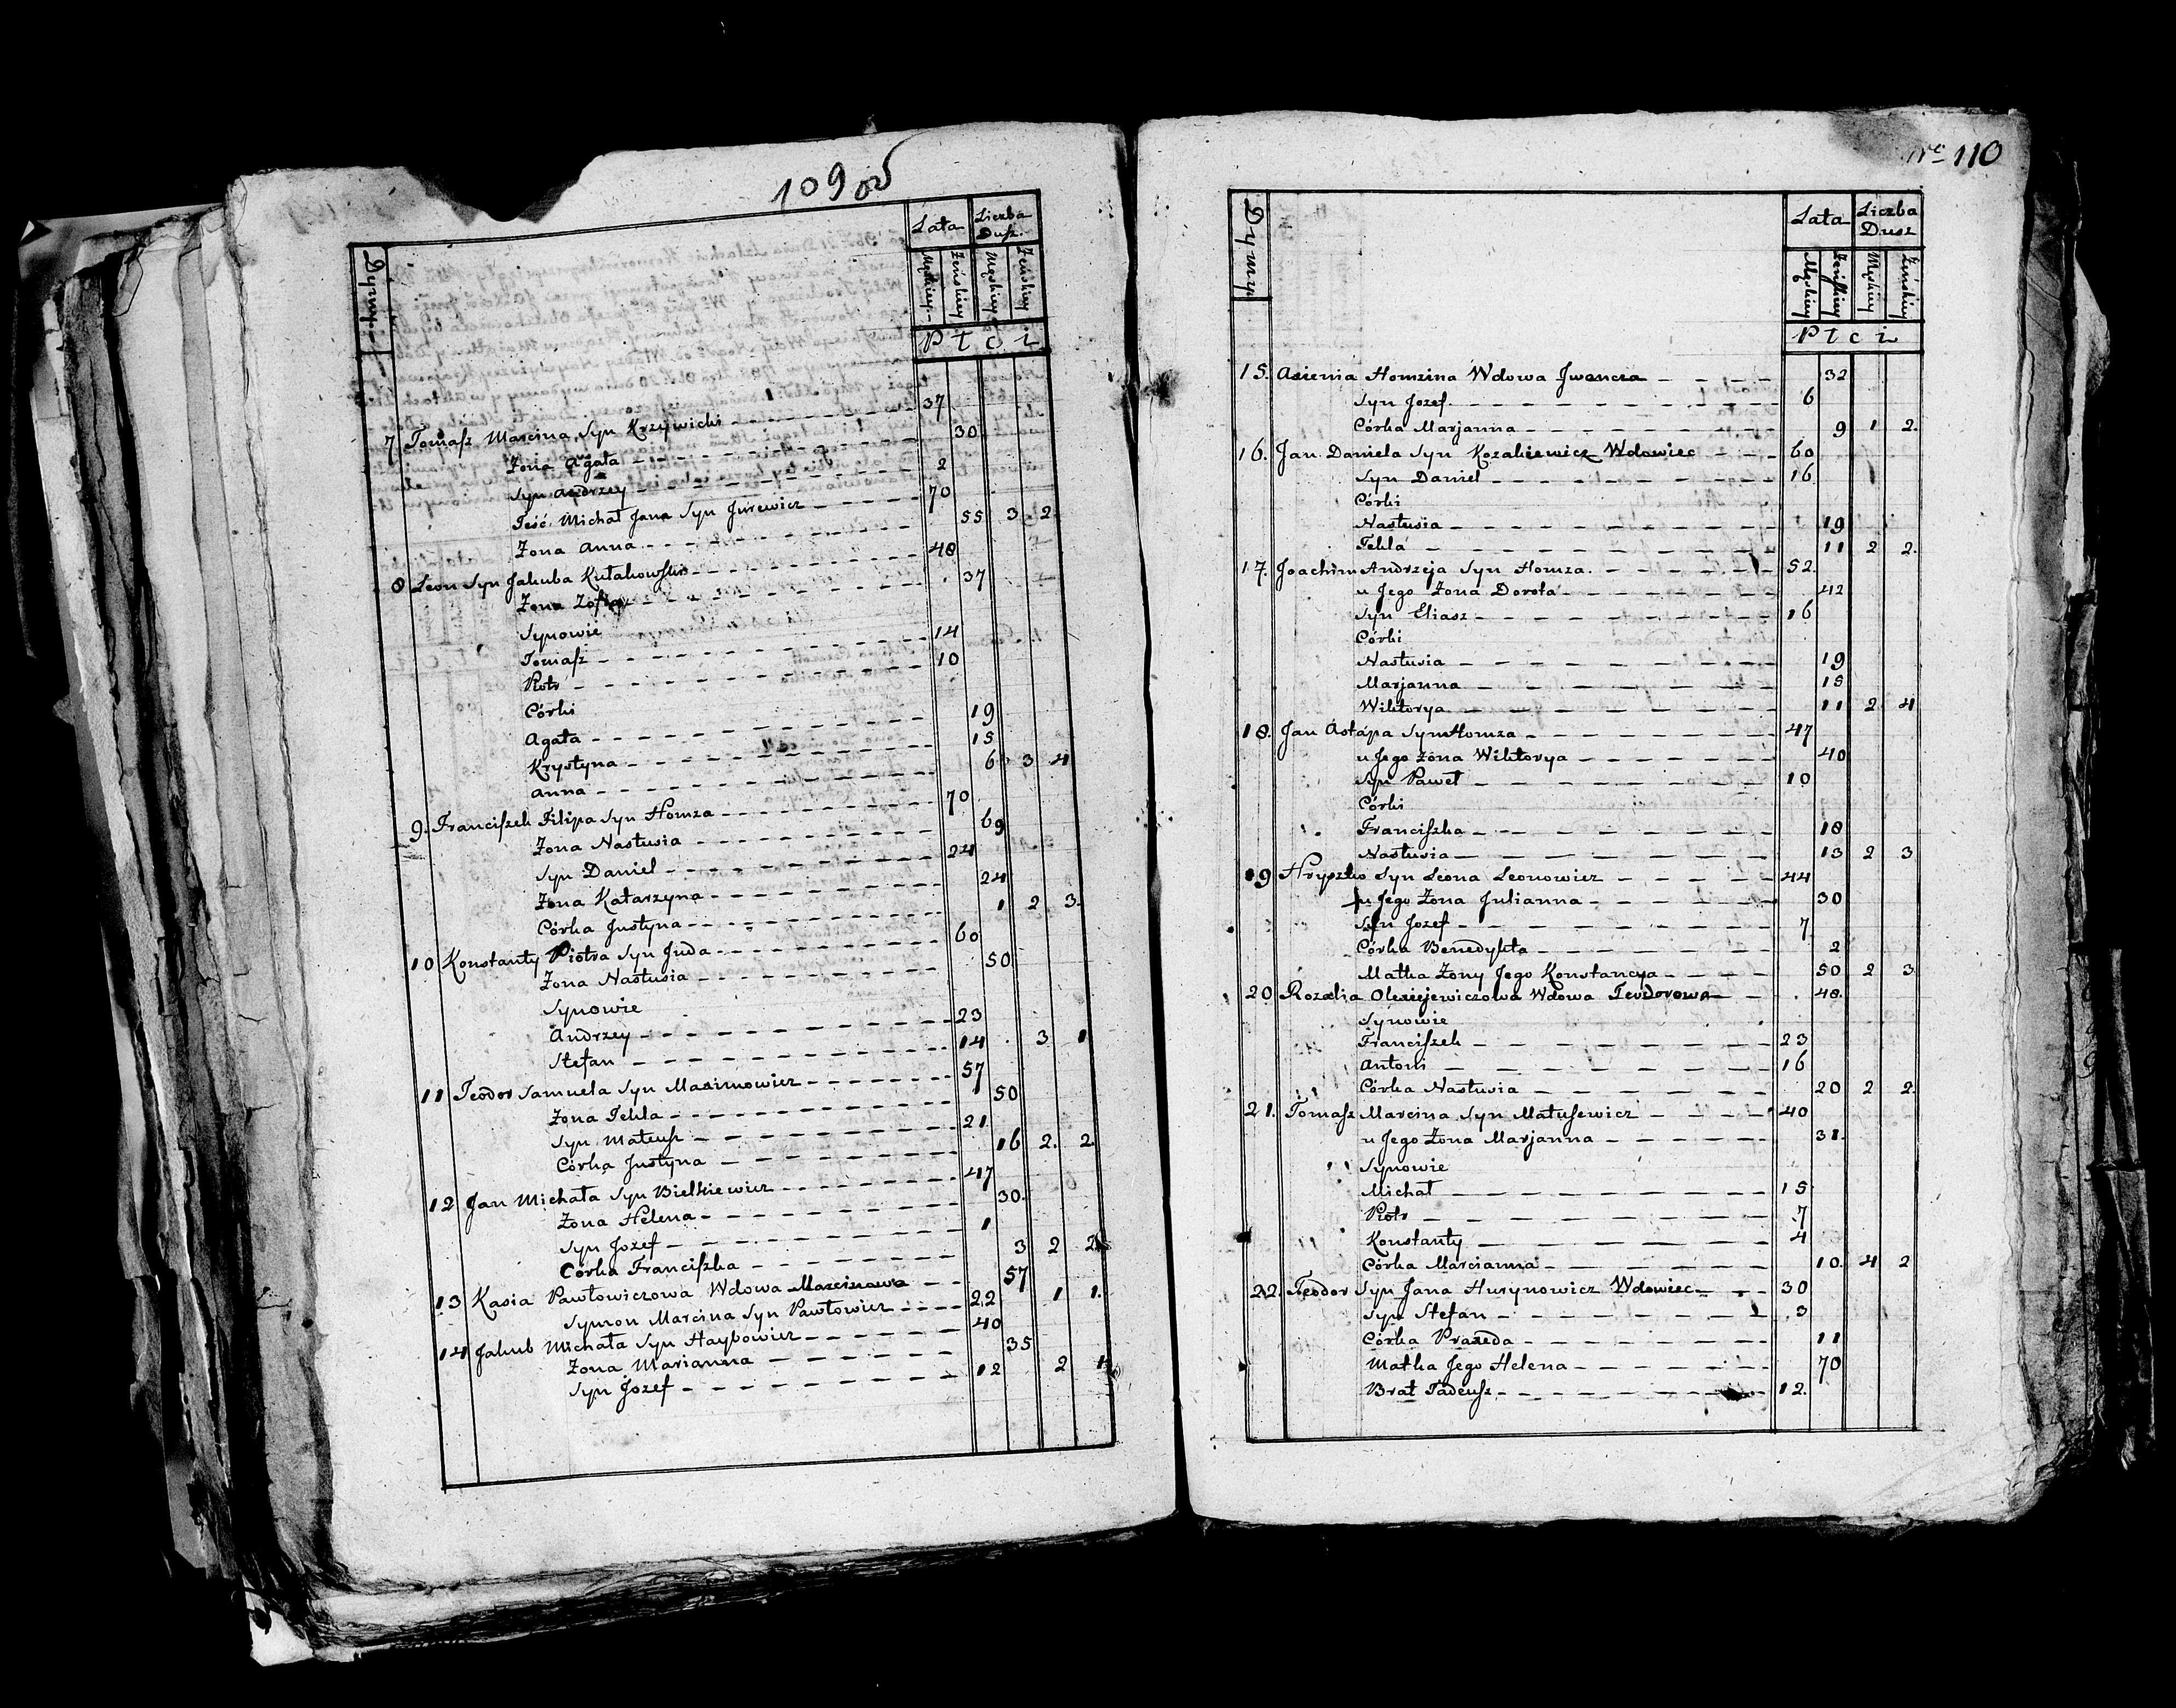 109 об
Dymy
Lata
Liczba Dusz.
Męskiey
Żeńskiey
Męskiey
Żeńskiey
Płci
7 Tomasz Marcina Syn Krzywicki 37
Żona Agata 30
Syn Andrzey 2
Teść Michał Jana Syn Jurewicz 70
Żona Anna 55 3 2
8 Leon Syn Jakuba Kułakowski 48
Żona Zofia 37
Synowie
Tomasz 14
Piotr 10
Córki
Agata 19
Krystyna 15
Anna 6 3 4
9. Franciszek Filipa Syn Homza 70
Żona Nastusia 69
Syn Daniel 24
Żona Katarzyna 24
Córka Justyna 1 2 3.
10 Konstanty Piotra Syn Juda 60
Żona Nastusia 50
Synowie
Andrzey 23
Stefan 14 3 1
11 Teodor Samuela Syn Maximowicz 57
Żona Tekla 50
Syn Mateusz 21
Córka Justyna 16 2. 2
12 Jan Michała Syn Bielkiewicz 47
Żona Helena 30.
Syn Jozef 1
Córka Franciszka 3 2 2
13 Kasia Pawłowiczowa Wdowa Marcinowa 57
Symon Marcina Syn Pawłowicz 22 1 1.
14 Jakub Michała Syn Haybowicz 40
Żona Marianna 35
Syn Jozef 12 2 1
110
Dymy
Lata
Liczba Dusz
Męskiey
Żeńskiey
Męskiey
Żeńskiey
Płci
15. Axienia Homzina Wdowa Jwancza 32
Syn Jozef 6
Córka Marjanna 9 1 2.
16. Jan Daniela Syn Kozakiewicz Wdowiec 60
Syn Daniel 16
Córki
Nastusia 19
Tekla 11 2 2.
17. Joachim Andrzeja Syn Homza. 52.
u Jego Żona Dorota 42
Syn Eliasz 16
Córki
Nastusia 19
Marjanna 15
Wiktorya 11 2 4
18. Jan Astapa Syn Homza 47
u Jego Żona Wiktorya 40
Syn Paweł 10
Córki
Franciszka 18
Nastusia 13 2 3
19 Hryszko Syn Leona Leonowicz 44
u Jego Żona Julianna 30
Syn Jozef 7
Córka Benedykta 2
Matka Żony Jego Konstancya 50 2 3
20 Rozalia Olexiejewiczowa Wdowa Teodorowa 48.
Synowie
Franciszek 23
Antoni 16
Córka Nastusia 20 2 2.
21. Tomasz Marcina Syn Matusewicz 40
u Jego Żona Marjanna 31.
Synowie
Michał 15
Piotr 7
Konstanty 4
Córka Marcianna 10. 4 2
22. Teodor Syn Jana Hurynowicz Wdowiec 30
Syn Stefan 3
Córka Praxeda 11
Matka Jego Helena 70
Brat Tadeusz 12.